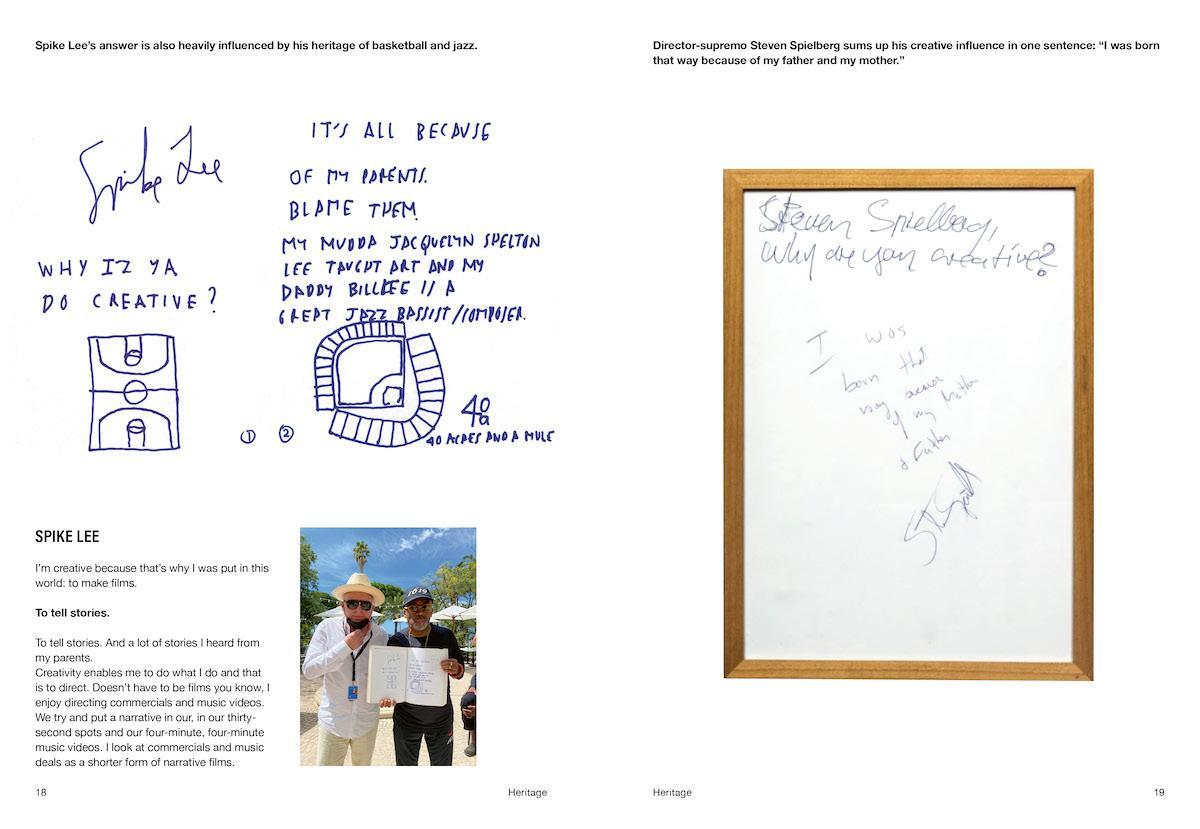 Spike Lee’s answer is also heavily influenced by his heritage of basketball and jazz.
Spike Lee
WHY IZ YA
DO CREATIVE?
IT'S ALL BECAUSE
OF MY PARENTS.
BLAME THEM.
MY MUDDA JACQUELYN SHELTON
LEE TAUGHT ART AND MY
DADDY BILL LEE IZ A
GREAT JAZZ BASSIST/COMPOSER.
① ②
40 ACRES AND A MULE
SPIKE LEE
I’m creative because that’s why I was put in this
world: to make films.
To tell stories.
To tell stories. And a lot of stories I heard from
my parents.
Creativity enables me to do what I do and that
is to direct. Doesn’t have to be films you know, I
enjoy directing commercials and music videos.
We try and put a narrative in our, in our thirty-
second spots and our four-minute, four-minute
music videos. I look at commercials and music
deals as a shorter form of narrative films.
1619
18
Heritage
Director-supremo Steven Spielberg sums up his creative influence in one sentence: “I was born
that way because of my father and my mother.”
Steven Spielberg,
why are you creative?
I was
born that
way because
of my Mother
& Father
Heritage
19